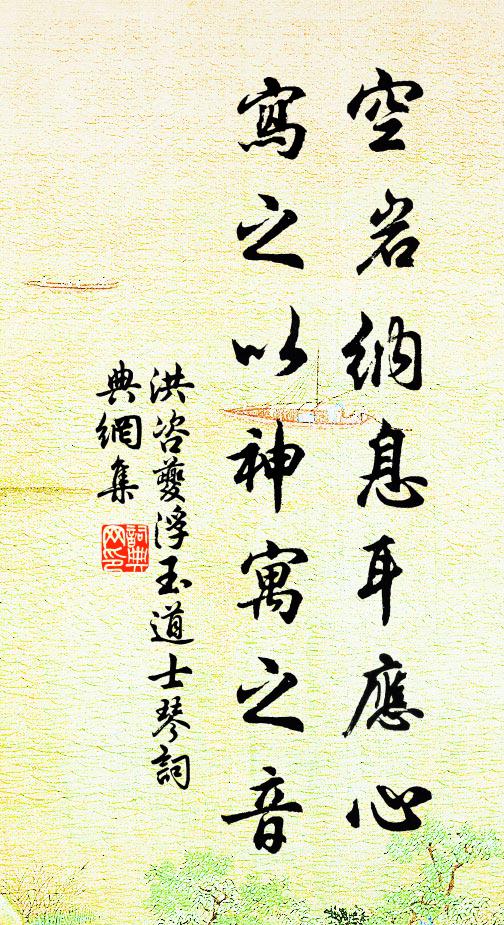 空岩納息耳應心
寫之以神寓之音
洪咨夔浮玉道士琴詞
典網集
詞典
网印